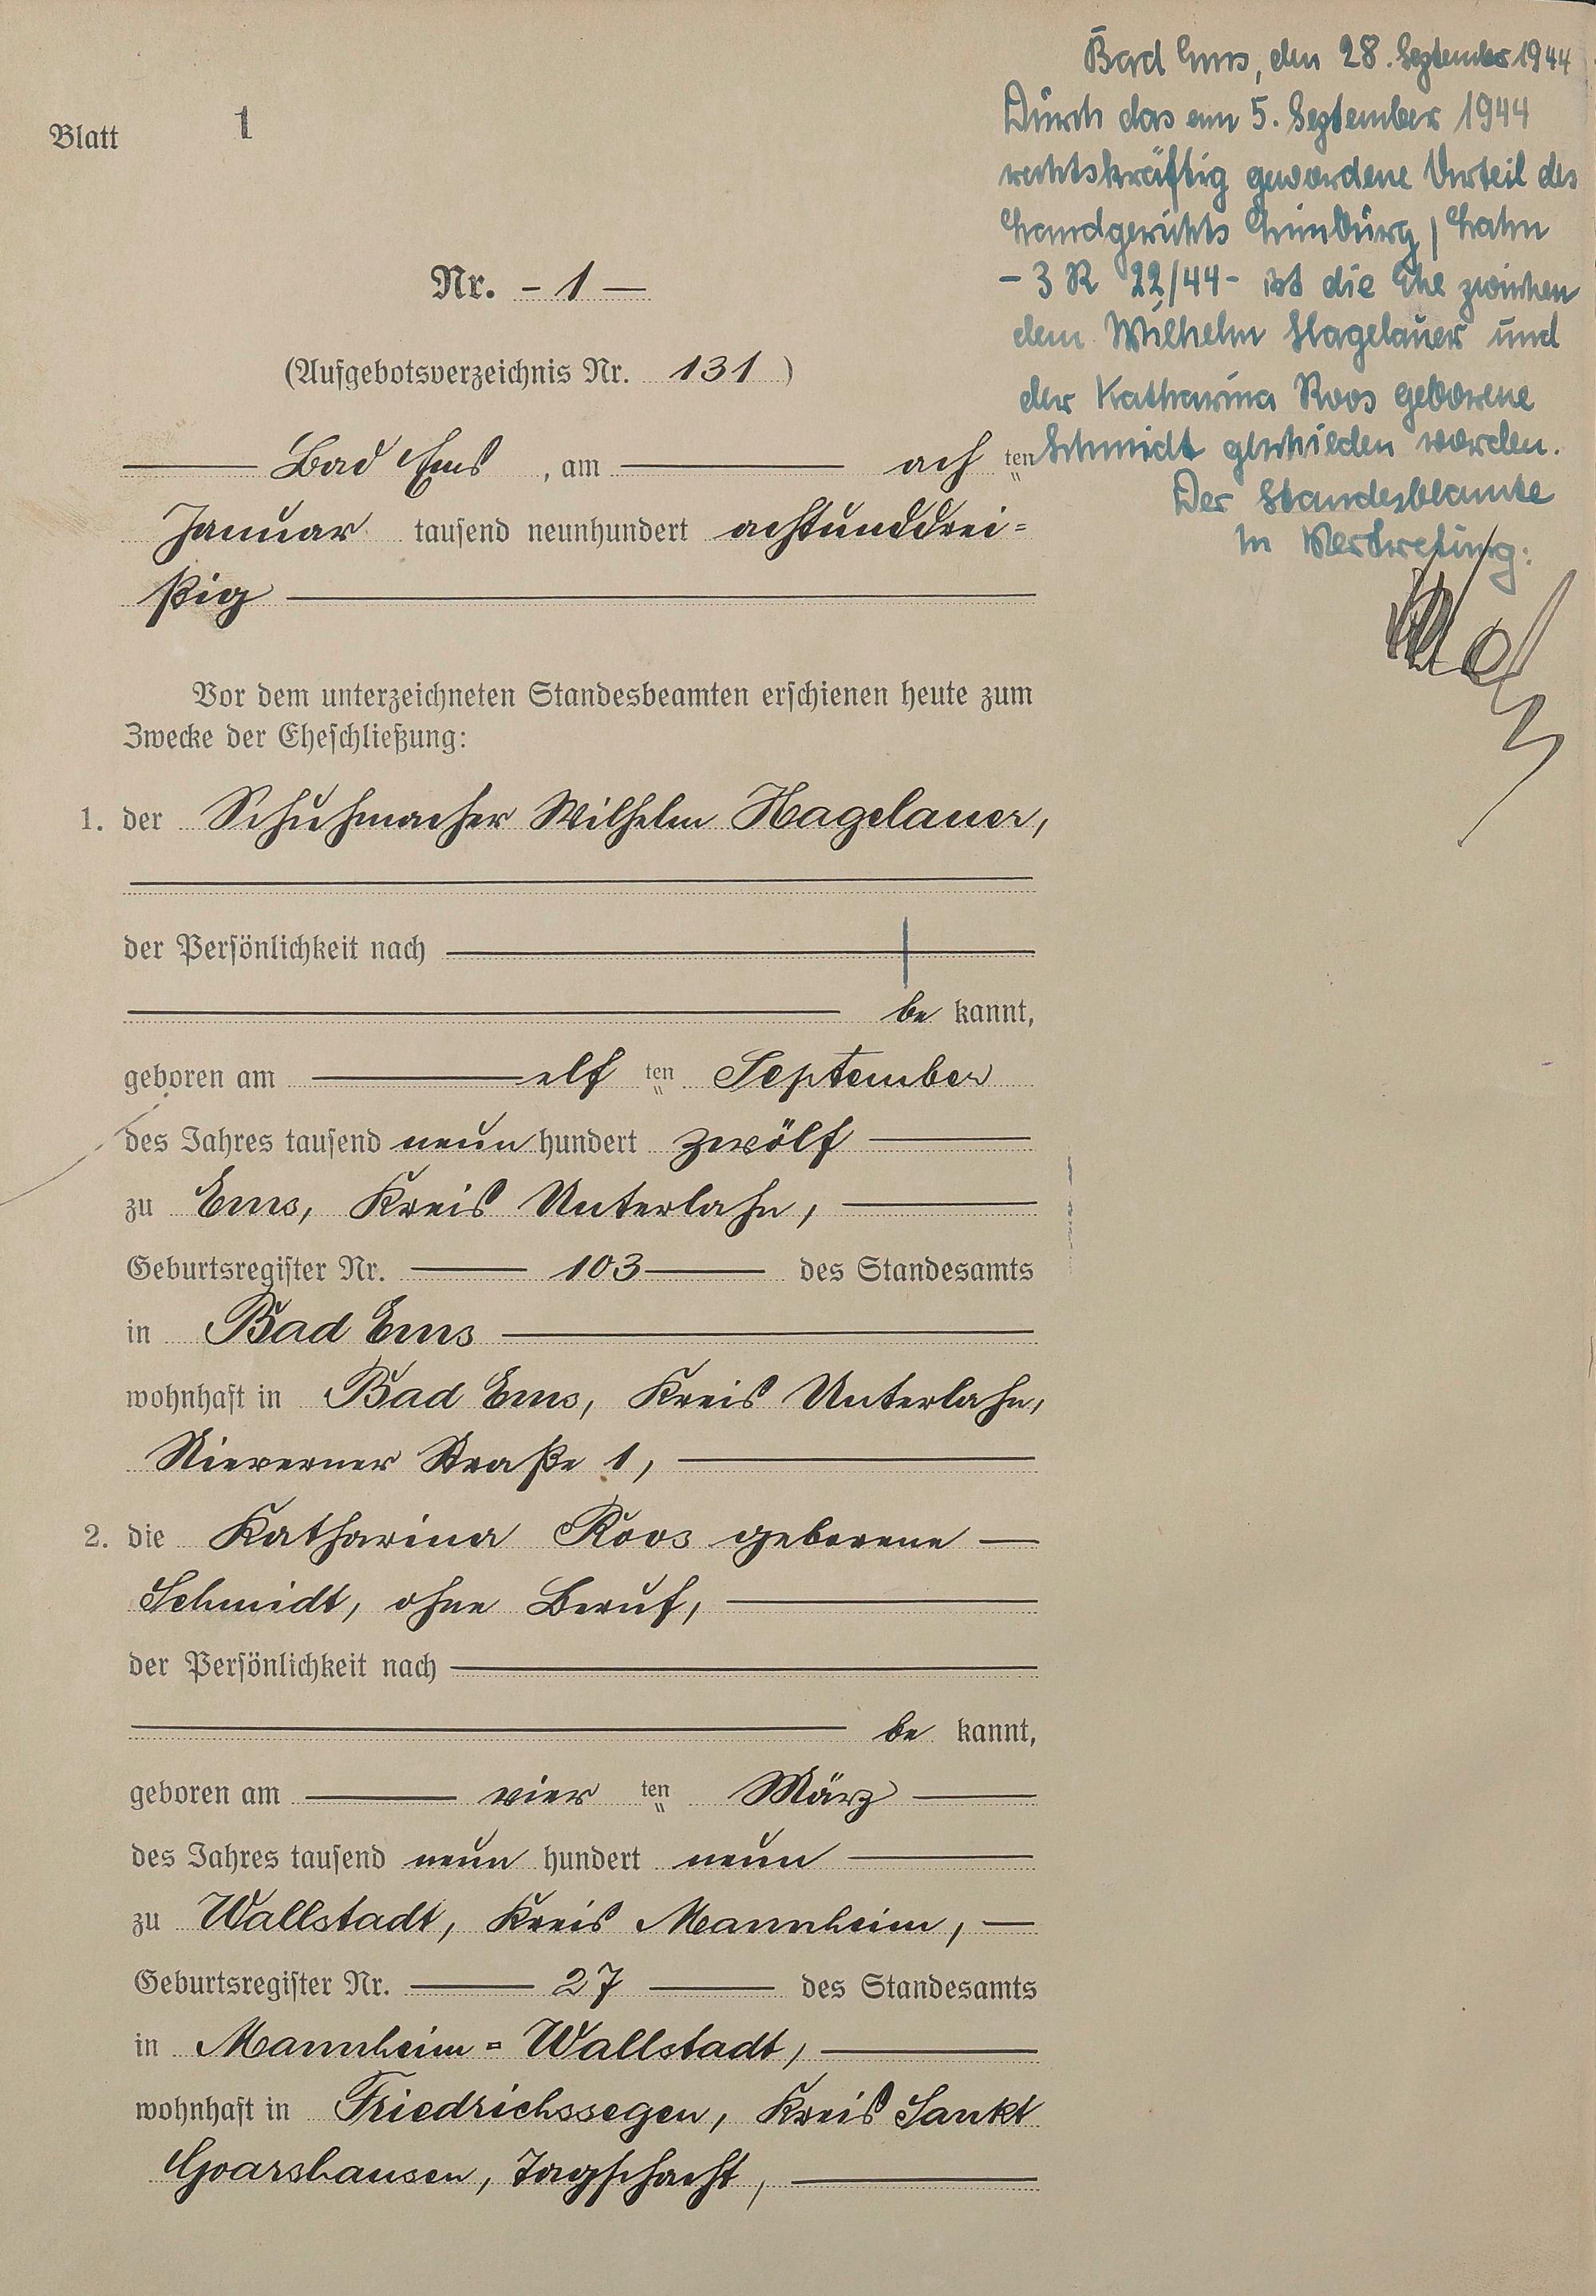 Blatt 1
Nr. - 1 -
(Aufgebotsverzeichnis Nr. 131)
Bad Ems, am ach ten
Januar tausend neunhundert achtunddrei=
ßig
Vor dem unterzeichneten Standesbeamten erschienen heute zum
Zwecke der Eheschließung:
1. der Schuhmacher Wilhelm Hagelauer,
der Persönlichkeit nach
be kannt,
geboren am elf ten September
des Jahres tausend neun hundert zwölf
zu Ems, Kreis Unterlahn,
Geburtsregister Nr. 103 des Standesamts
in Bad Ems
wohnhaft in Bad Ems, Kreis Unterlahn,
Nieverner Straße 1,
2. die Katharina Roos geborene
Schmidt, ohne Beruf,
der Persönlichkeit nach
be kannt,
geboren am vier ten März
des Jahres tausend neun hundert neun
zu Wallstadt, Kreis Mannheim,
Geburtsregister Nr. 27 des Standesamts
in Mannheim=Wallstadt,
wohnhaft in Friedrichssegen, Kreis Sankt
Goarshausen, Tagschacht,
Bad Ems, den 28. September 1944
Durch das am 5. September 1944
rechtskräftig gewordene Urteil des
Landgerichts Limburg / Lahn
- 3 R 22/44 - ist die Ehe zwischen
dem Wilhelm Hagelauer und
der Katharina Roos geborene
Schmidt geschieden worden.
Der Standesbeamte
In Vertretung: